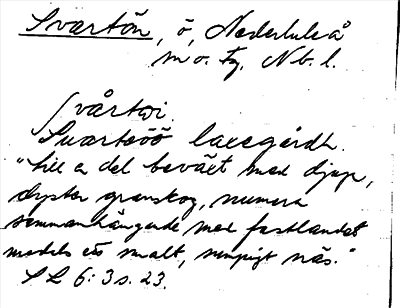 Svartön, ö, Nederluleå
sn o. tg, Nb. l.
svårtöi.
Suartøöö laxegårdh.
"till en del beväxt med djup,
dyster granskog, numera
sammanhängande med fastlandet
medels ett smalt, sumpigt näs."
SL 6: 3 s. 23.